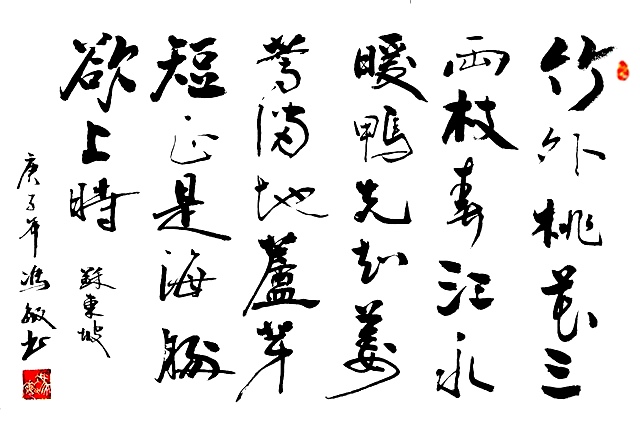 竹外桃花三
两枝春江水
暖鴨先知蔞
蒿满地蘆芽
短正是海豚
欲上時 蘇東坡
庚子年馮敏书